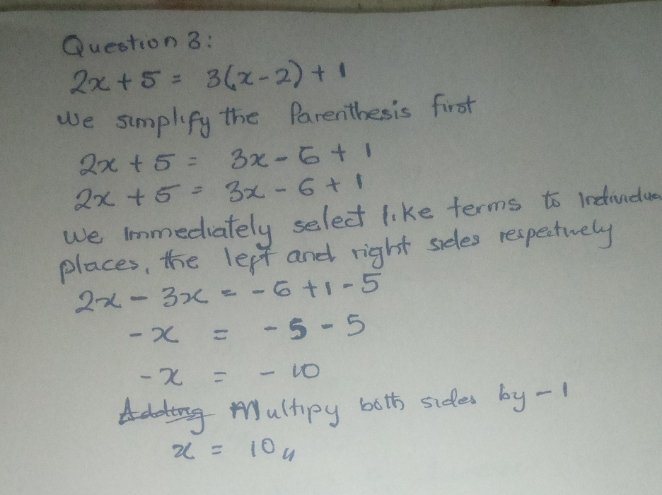 Question 3:
2x + 5 = 3(x-2) + 1
We simplify the Parenthesis first
2x + 5 = 3x - 6 + 1
2x + 5 = 3x - 6 + 1
We immediately select like terms to
places, the left and right sides respectively
2x - 3x = - 6 + 1 - 5
- x = - 5 - 5
- x = - 10
Adding Multipy both sides by - 1
x = 10